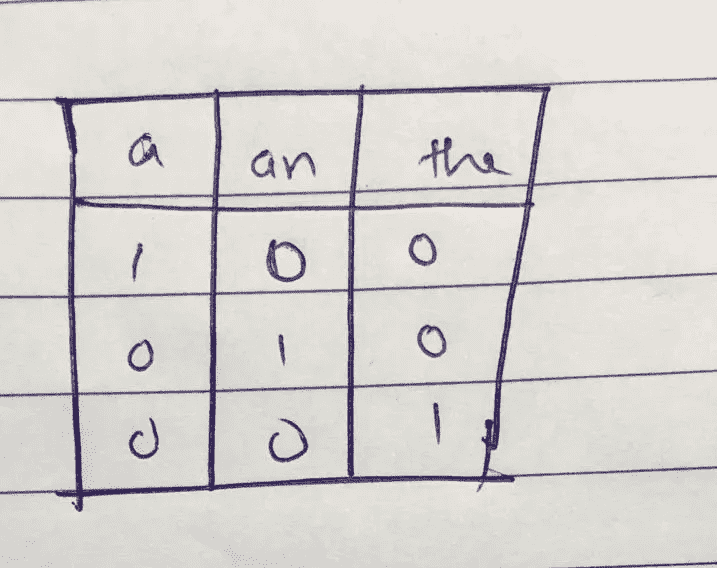 a an the
1 0 0
0 1 0
0 0 1